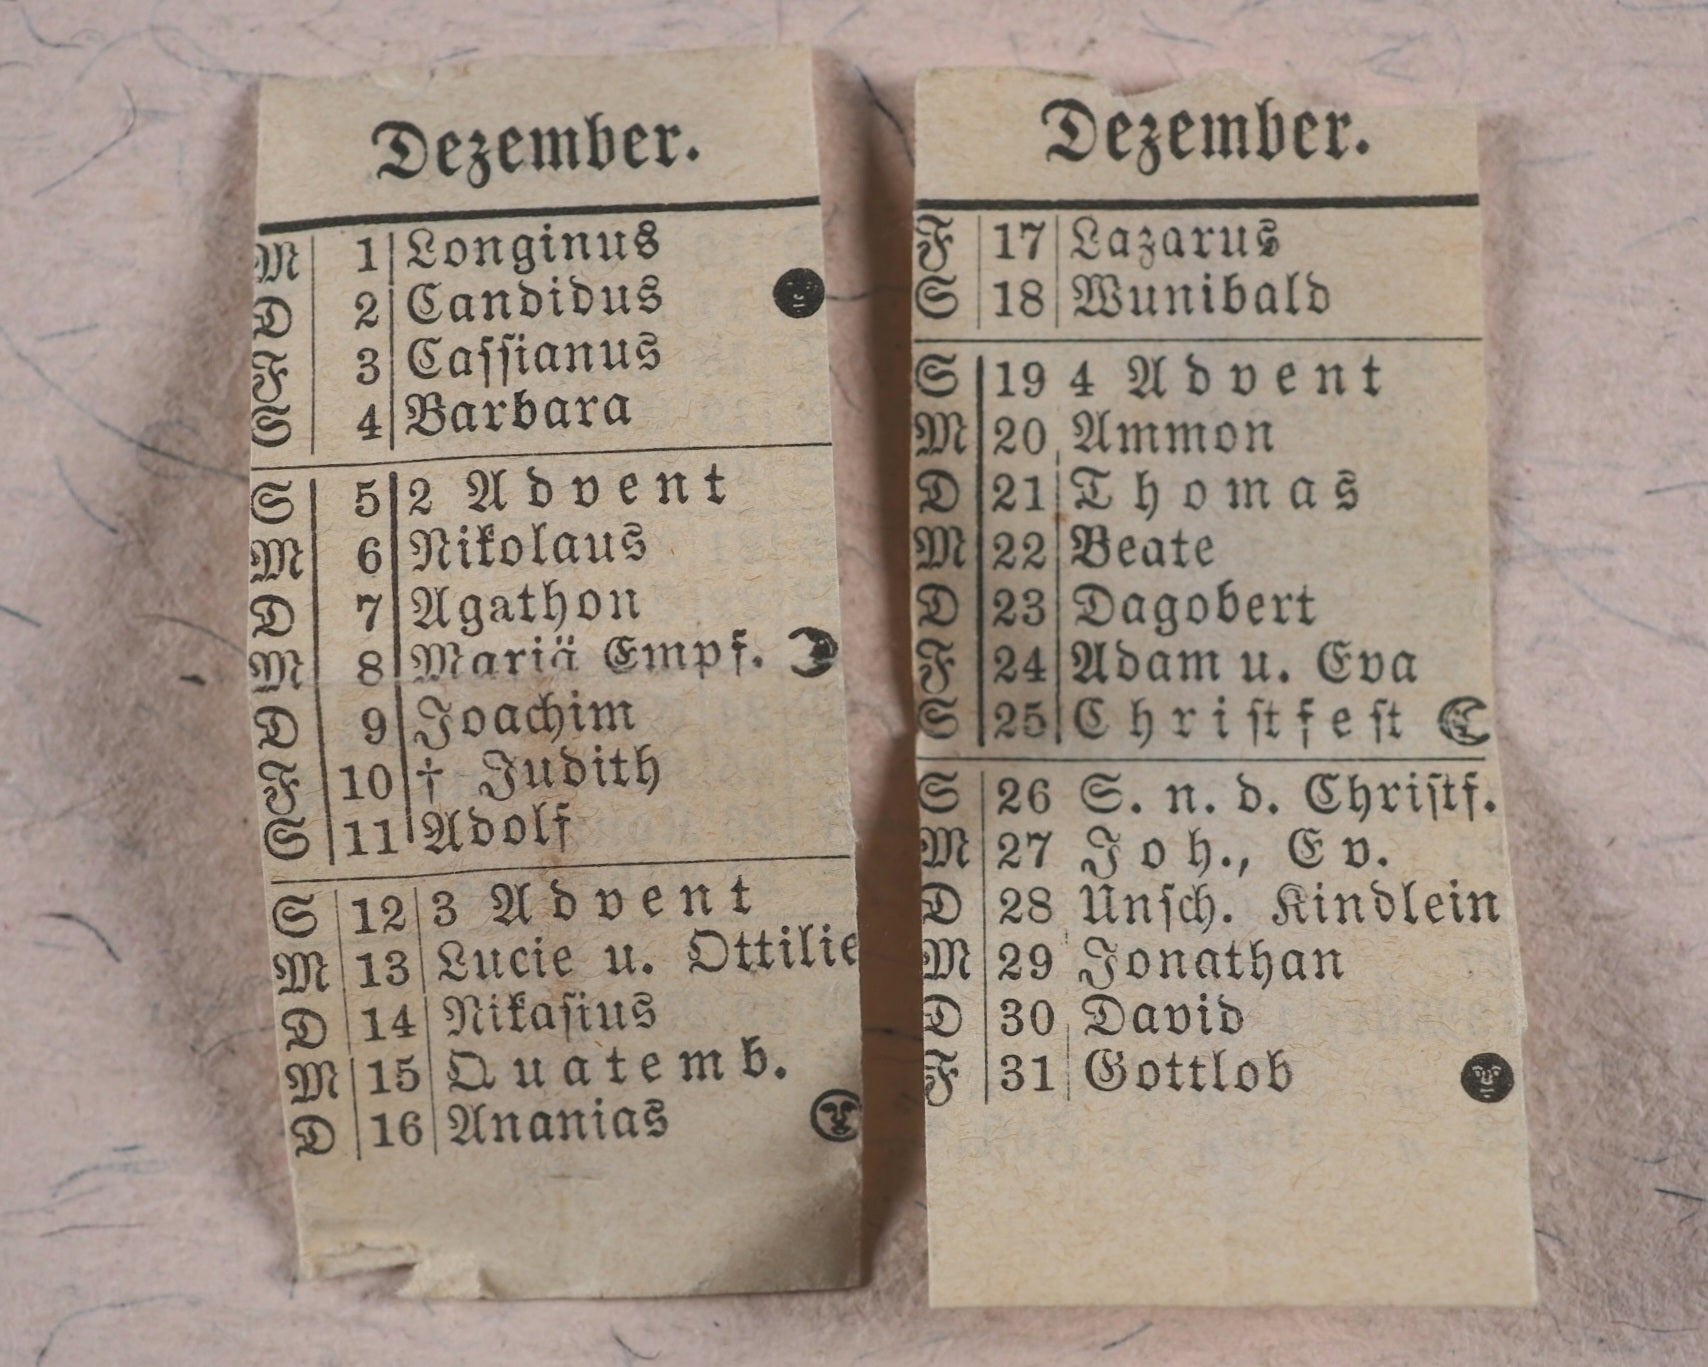 Dezember.
M 1 Longinus
D 2 Candidus
F 3 Caſſianus
S 4 Barbara
S 5 2 Advent
M 6 Nikolaus
D 7 Agathon
M 8 Mariä Empf.
D 9 Joachim
F 10 † Judith
S 11 Adolf
S 12 3 Advent
M 13 Lucie u. Ottilie
D 14 Nikaſius
M 15 Quatemb.
D 16 Ananias
Dezember.
F 17 Lazarus
S 18 Wunibald
S 19 4 Advent
M 20 Ammon
D 21 Thomas
M 22 Beate
D 23 Dagobert
F 24 Adam u. Eva
S 25 Chriſtfeſt
S 26 S. n. d. Chriſtf.
M 27 Joh., Ev.
D 28 Unſch. Kindlein
M 29 Jonathan
D 30 David
F 31 Gottlob